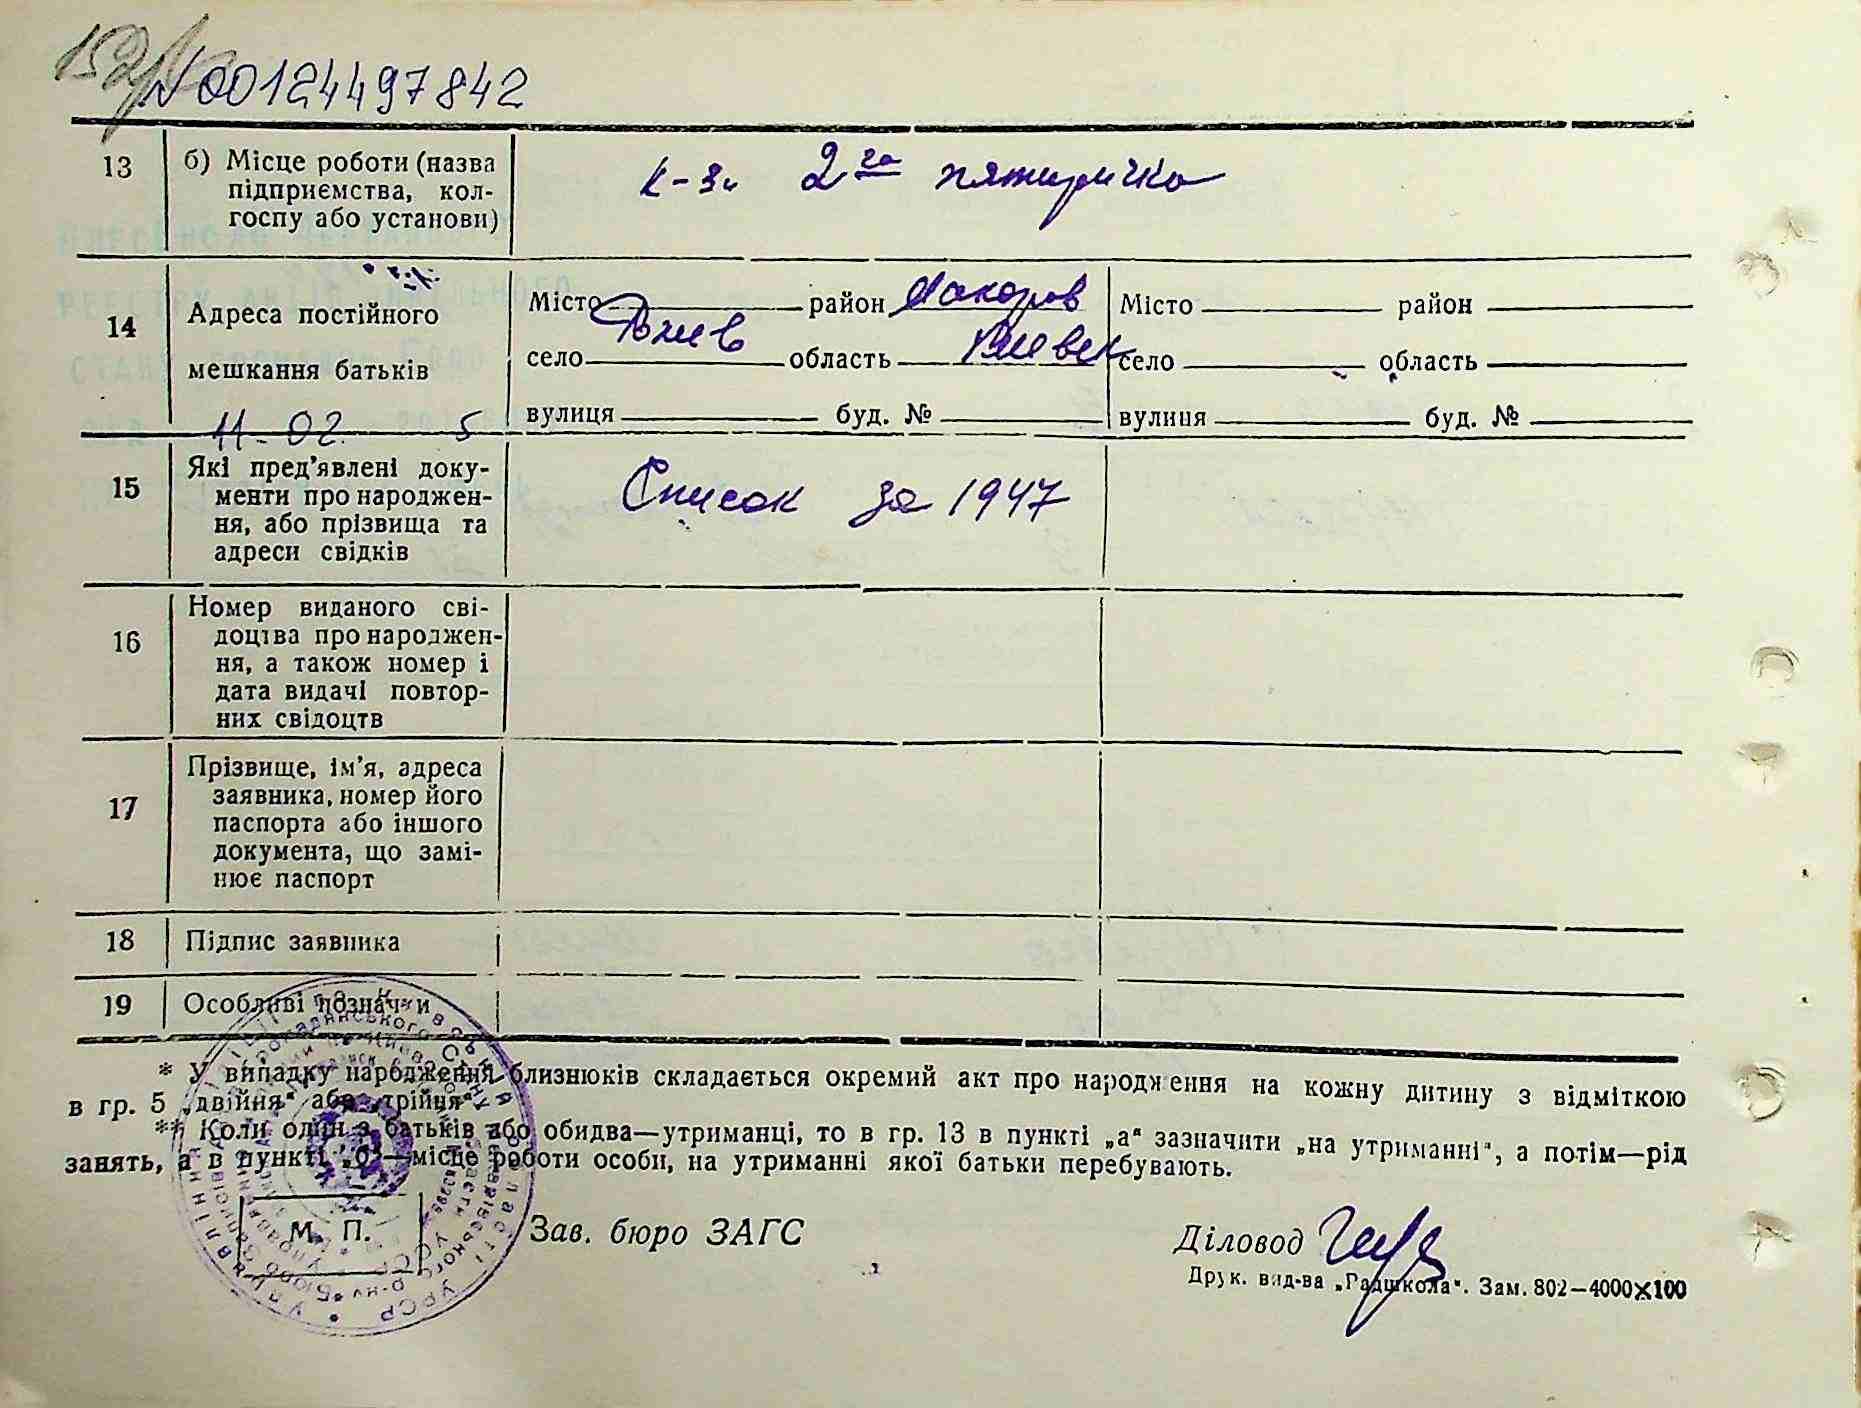 №00124497842
13
б) Місце роботи (назва
підприємства, кол-
госпу або установи)
к-з 2га пятирічка
14
Адреса постійного
мешкання батьків
Місто район Макоров
село Вижів область Київск
вулиця буд. №
Місто район
село область
вулиця буд. №
11-02 5
15
Які пред'явлені доку-
менти про народжен-
ня, або прізвища та
адреси свідків
Список за 1947
16
Номер виданого сві-
доцтва про народжен-
ня, а також номер і
дата видачі повтор-
них свідоцтв
17
Прізвище, ім'я, адреса
заявника, номер його
паспорта або іншого
документа, що замі-
нює паспорт
18
Підпис заявника
19
Особливі позначки
* У випадку народження близнюків складається окремий акт про народження на кожну дитину з відміткою
в гр. 5 „двійня“ або „трійня“.
** Коли один з батьків або обидва—утриманці, то в гр. 13 в пункті „а“ зазначити „на утриманні“, а потім—рід
занять, а в пункті „б“—місце роботи особи, на утриманні якої батьки перебувають.
М. П.
Зав. бюро ЗАГС
Діловод
Друк. вид-ва „Радшкола“. Зам. 802—4000×100